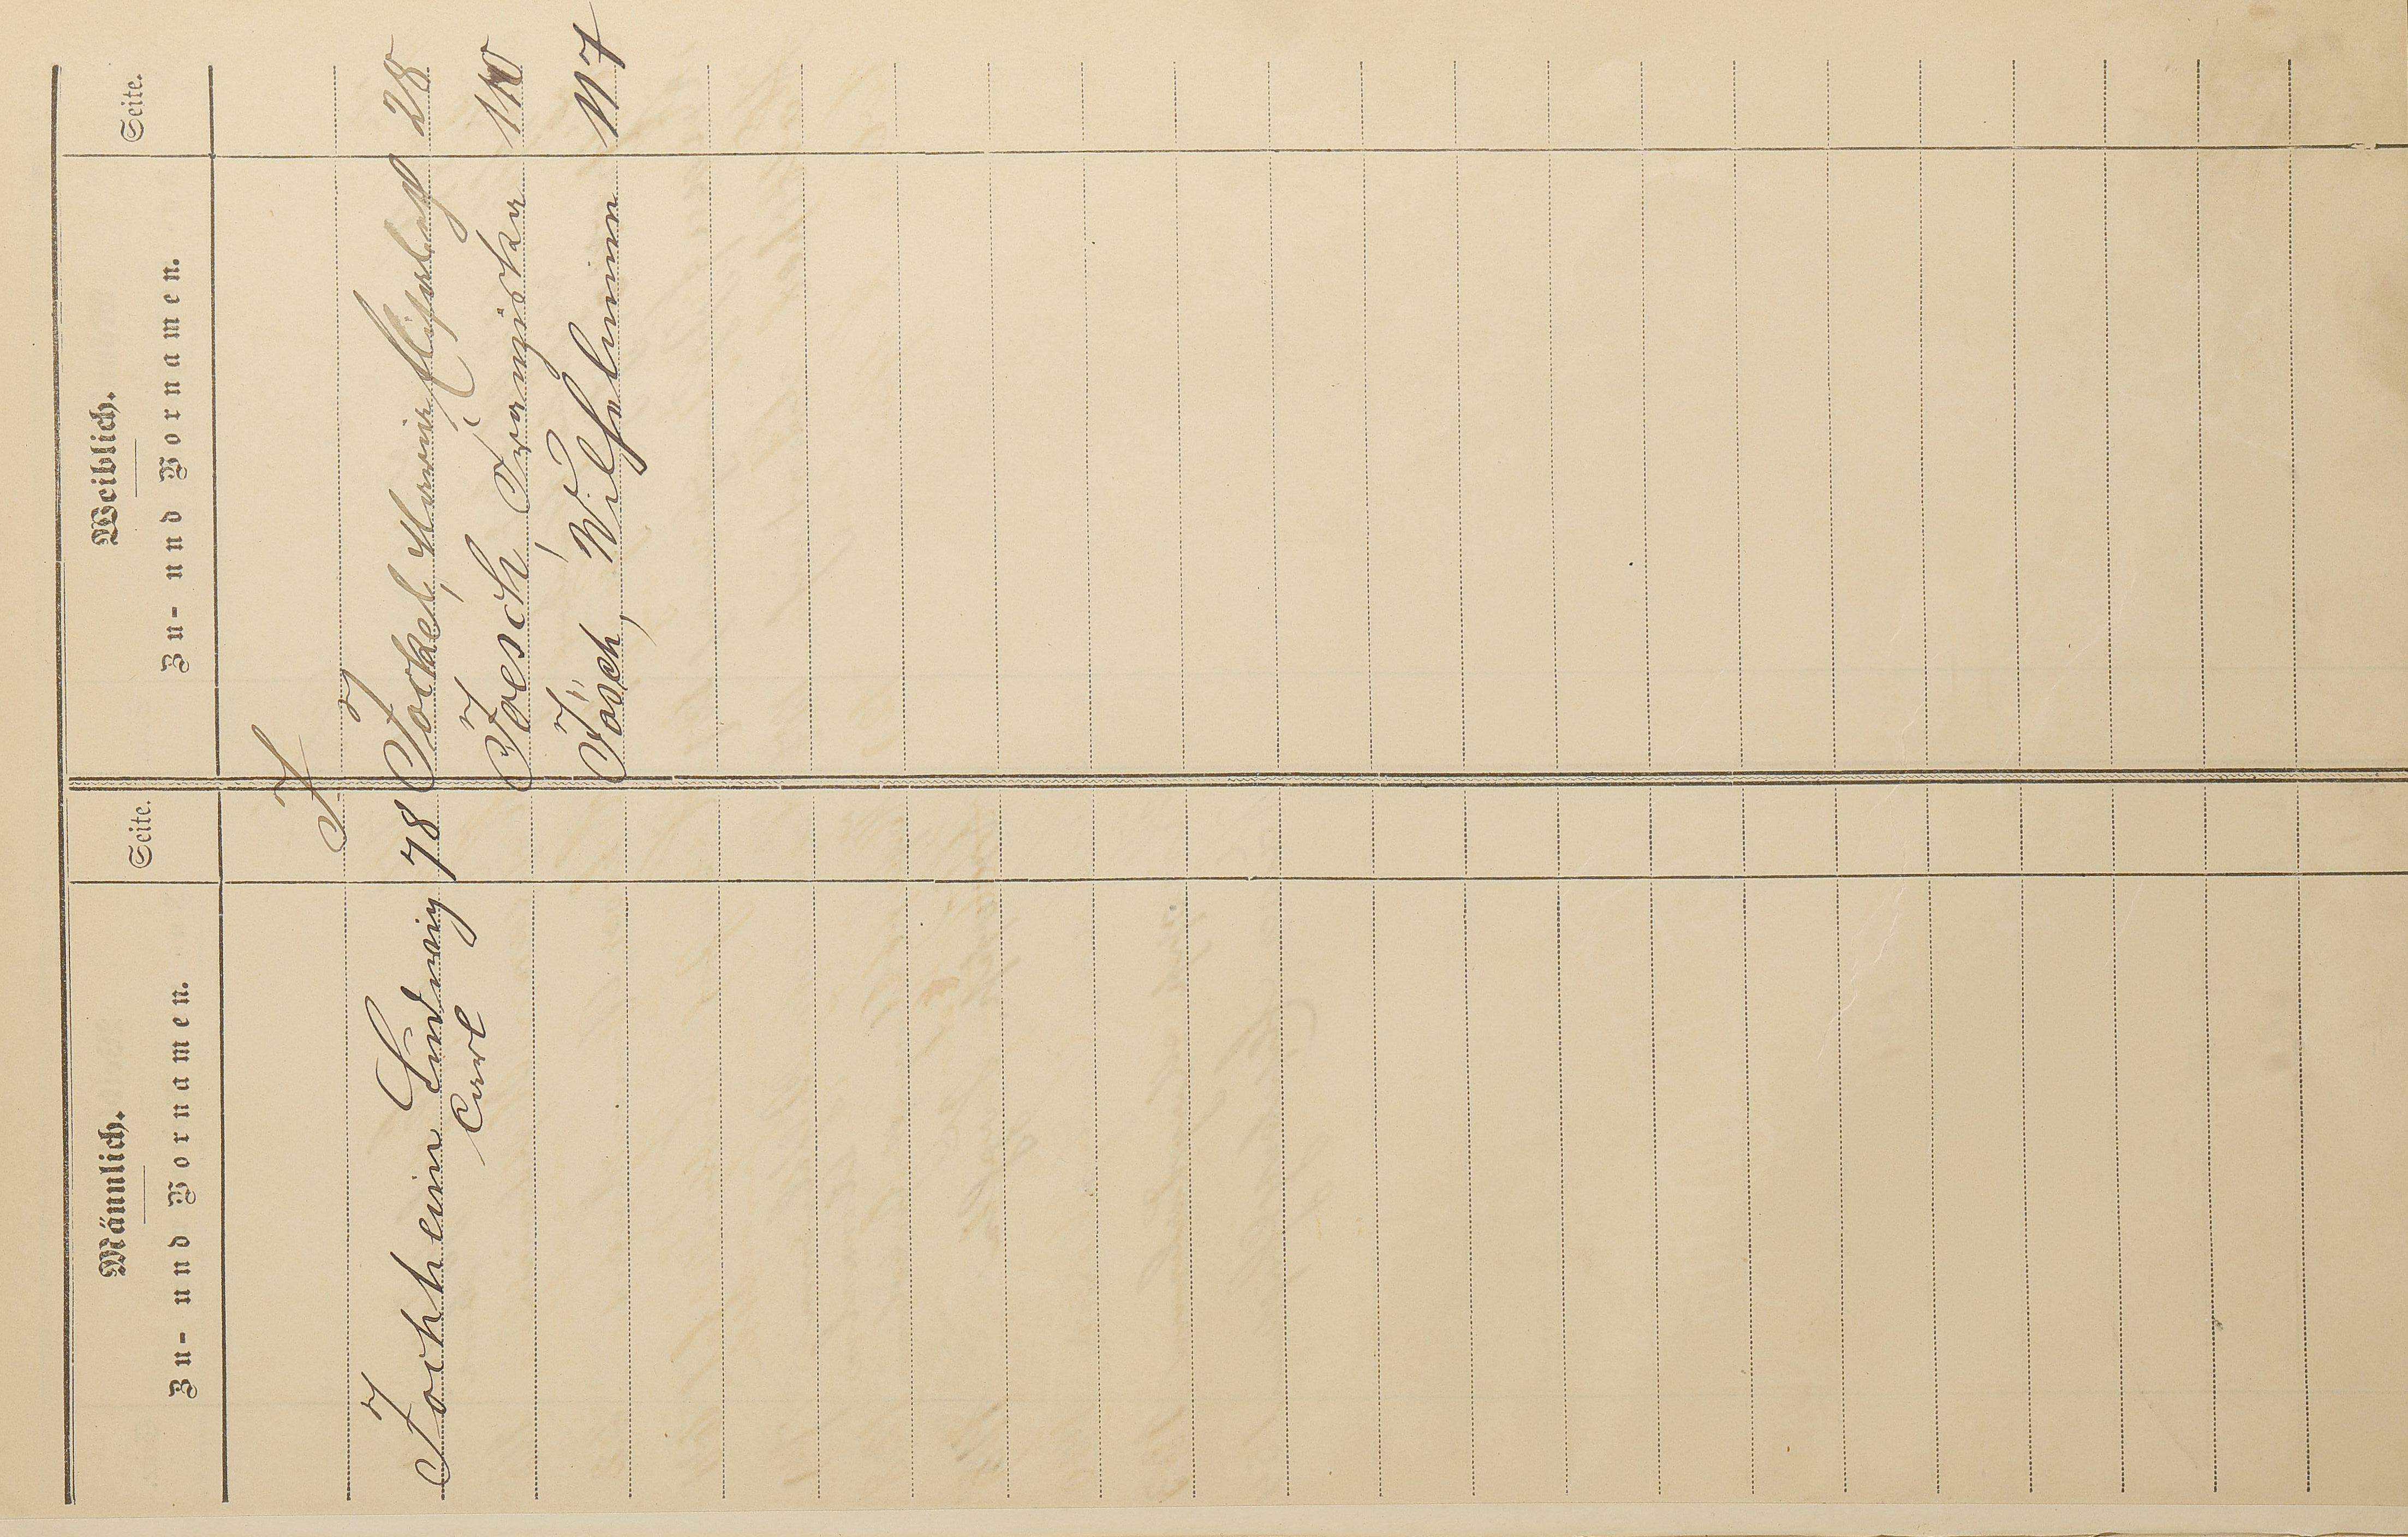 Männlich. Weiblich.
Zu- und Vornamen. Seite. Zu- und Vornamen. Seite.
J
Jochheim Ludwig 78 Jockel, Maria Elisabeth 28
Carl Joesch, Franziska 110
Jösch, Wilhelmine 117